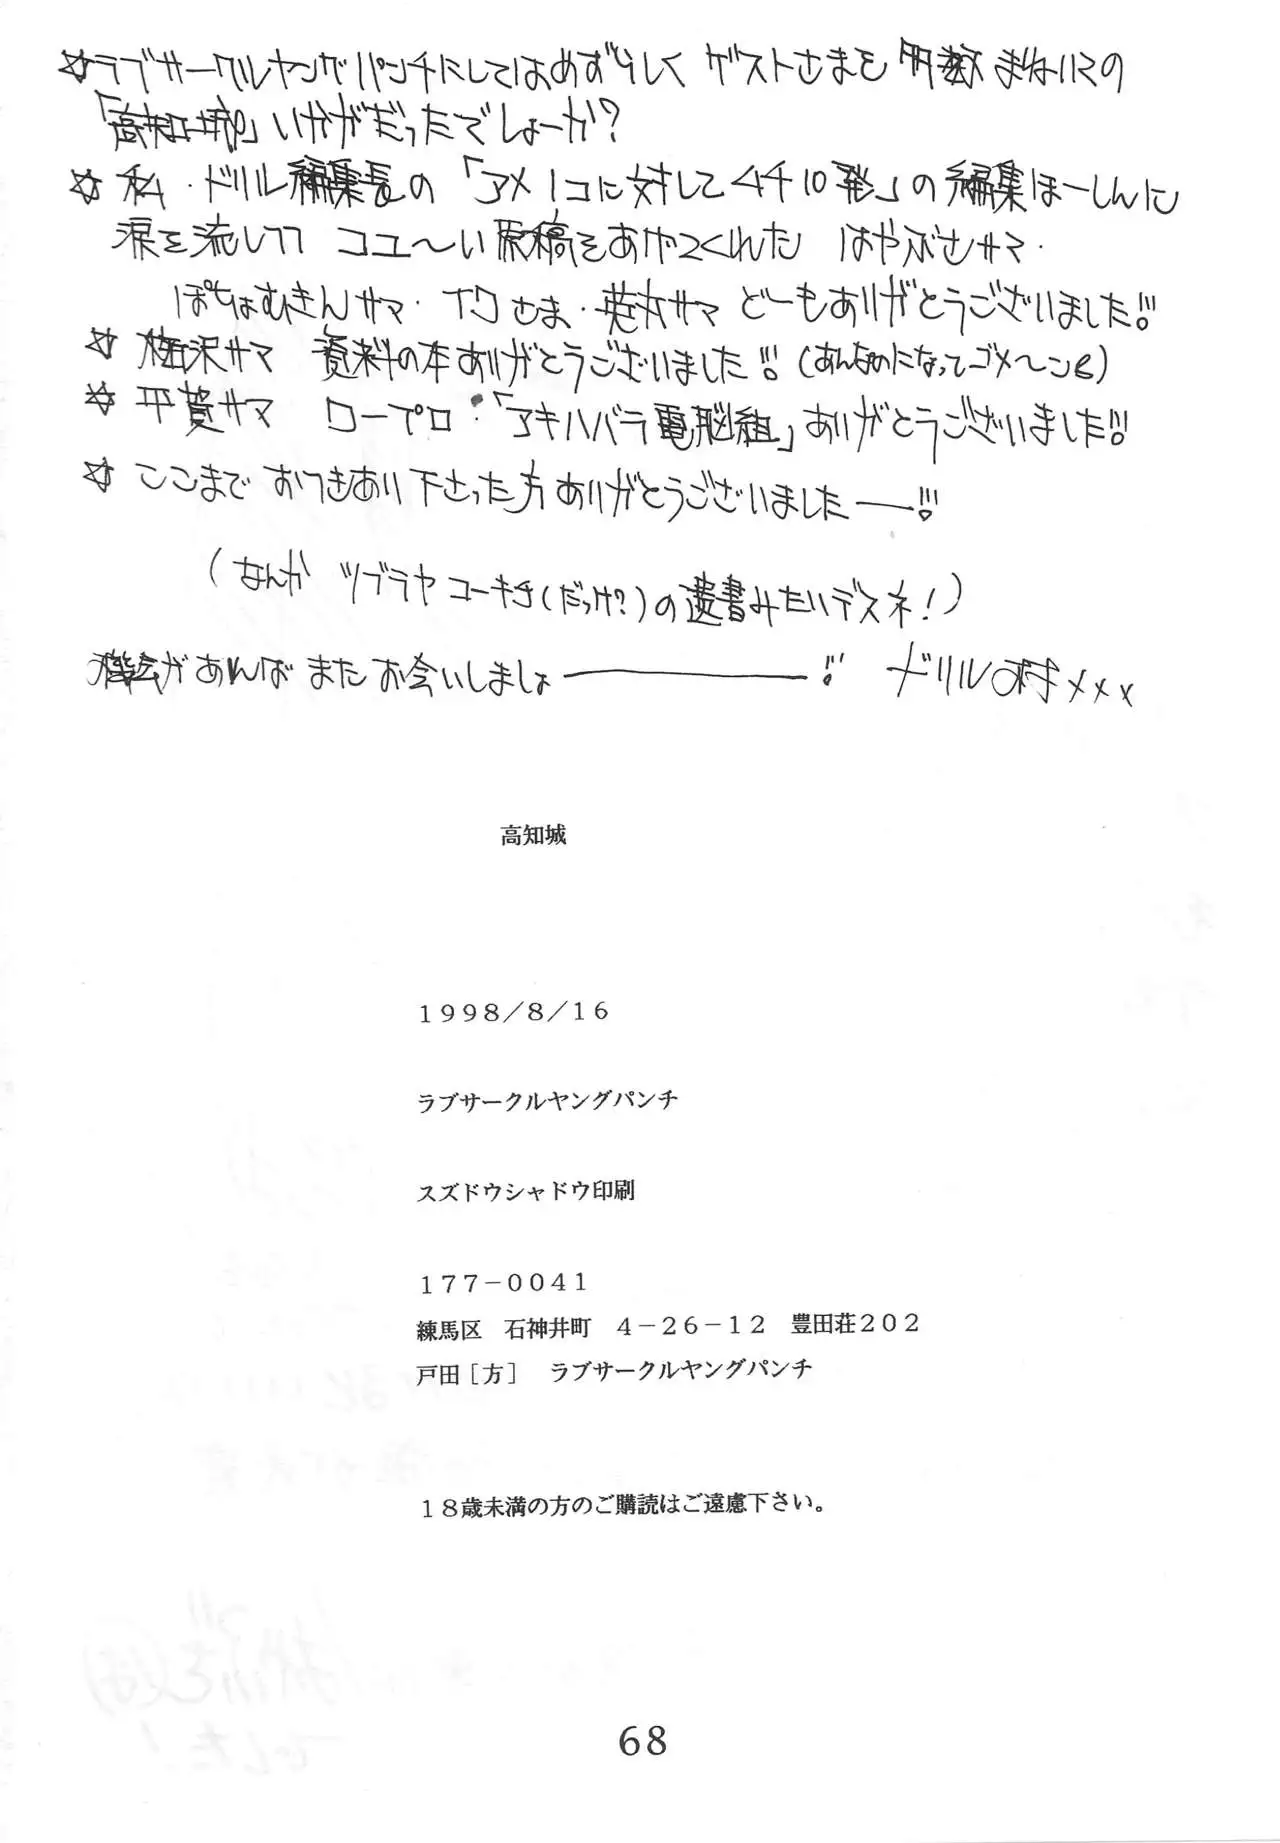 ☆ラブサークルヤングパンチにしてはめずらしく ゲストさまを 多数 まねいての
「高知城」いかがだったでしょーか?
☆ 私・ドリル編集長の「アメ1コに対してムチ10発」の編集ほーしんに
涙を流しつつ コユ〜い原稿をあげてくれた はやぶさサマ・
ぽちょむきんサマ・ さま・ サマ どーもありがとうございました!!
☆ 梅沢サマ 資料の本ありがとうございました!! (あんなのになってゴメ〜ン)
☆ 平賀サマ ロープロ・「アキハバラ電脳組」ありがとうございました!!
☆ ここまで おつきあり下さった方ありがとうございました——!!
(なんか ツブラヤコーキチ(だっけ?)の遺書みたいデスネ!)
機会があればまたお会いしましょ————!! ドリル村×××
高知城
1998/8/16
ラブサークルヤングパンチ
スズドウシャドウ印刷
177−0041
練馬区 石神井町 4−26−12 豊田荘202
戸田[方] ラブサークルヤングパンチ
18歳未満の方のご購読はご遠慮下さい。
68